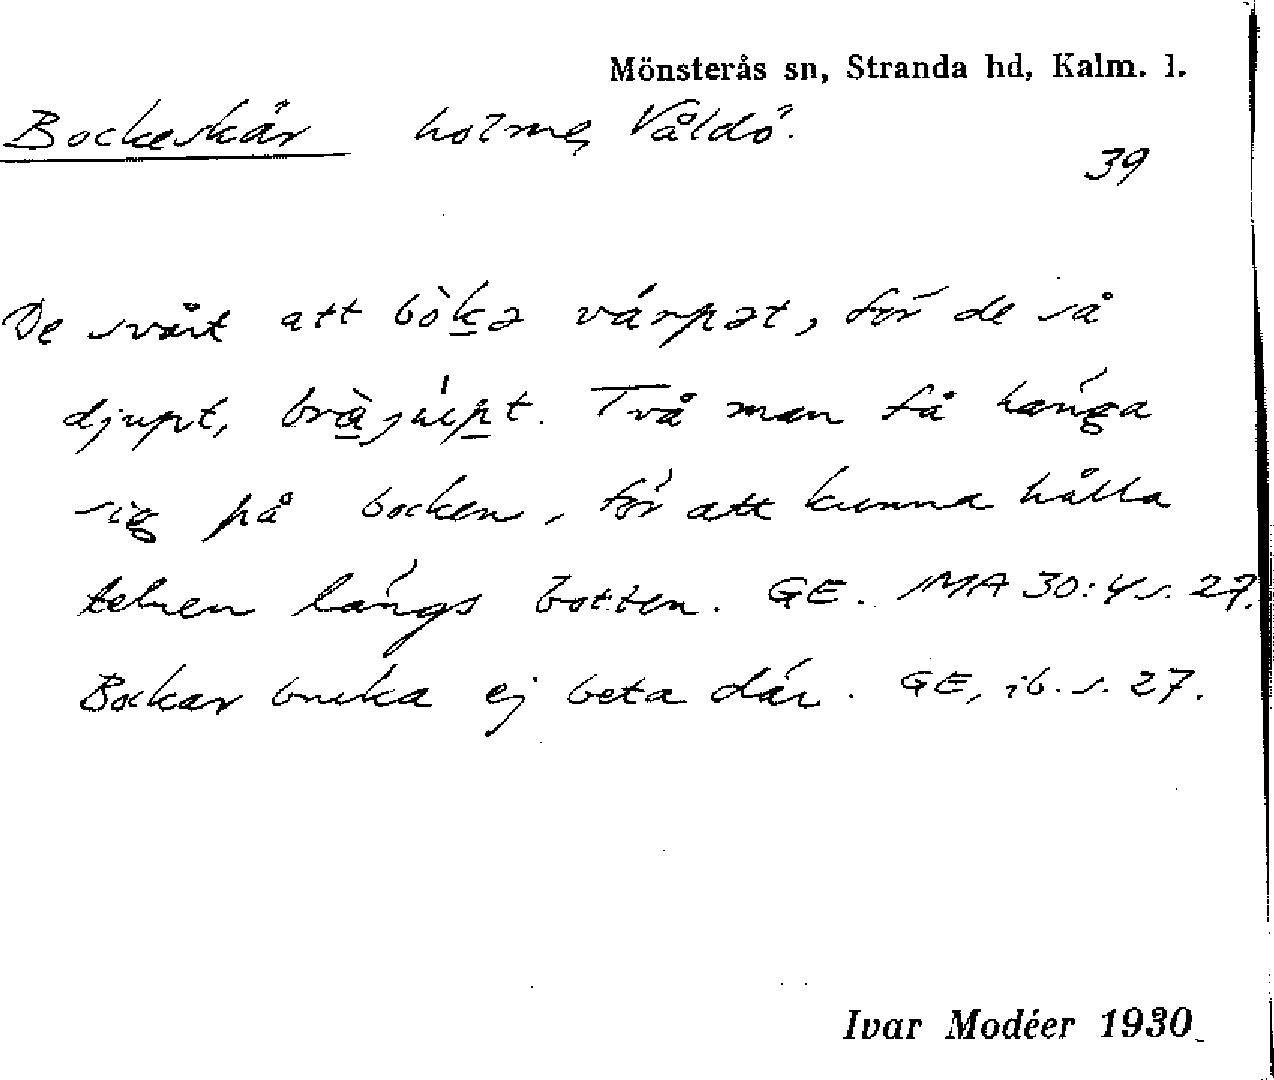 Mönsterås sn, Stranda hd, Kalm. l.
Bockeskär holme, Våldö.
39
De svårt att bòḵə várpət, för de så
djupt, brà̱júp̱t. Två man få hänga
sig på bocken, för att kunna hålla
telnen längs botten. GE. IMA 30:4 s. 27.
Bockar bruka ej beta där. GE, ib. s. 27.
Ivar Modéer 1930